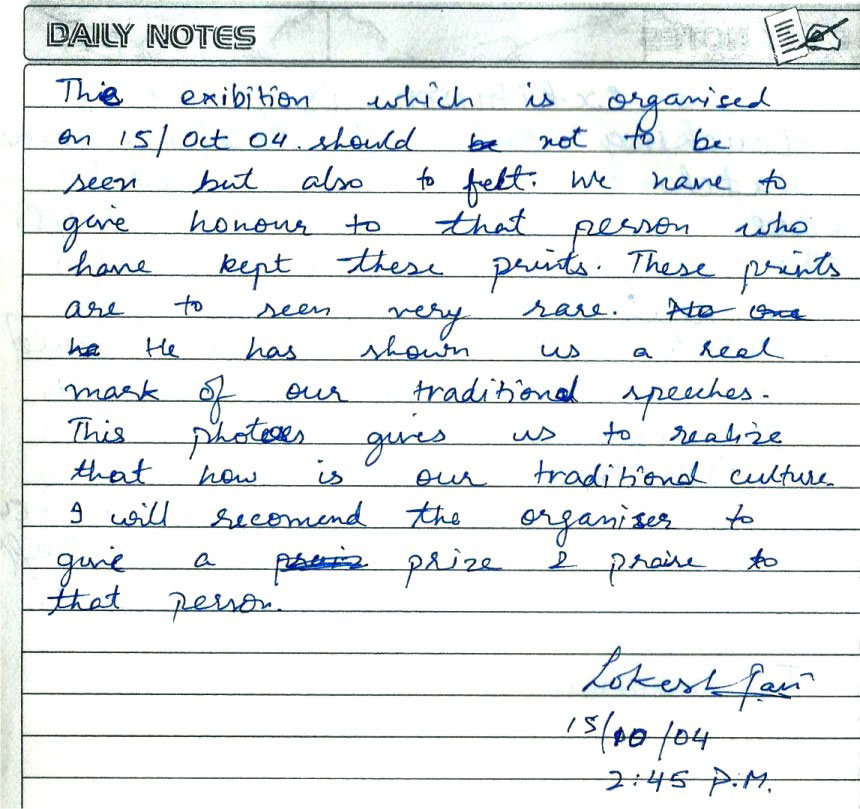 DAILY NOTES
This exibition which is organised
on 15/ Oct 04. should be not to be
seen but also to felt. We have to
give honour to that person who
have kept these prints. These prints
are to seen very rare. No one
ha He has shown us a real
mark of our traditional speeches.
This photoes gives us to realize
that how is our traditional culture.
I will recomend the organiser to
give a prize & praise to
that person.
Lokesh
15/10/04
2:45 P.M.